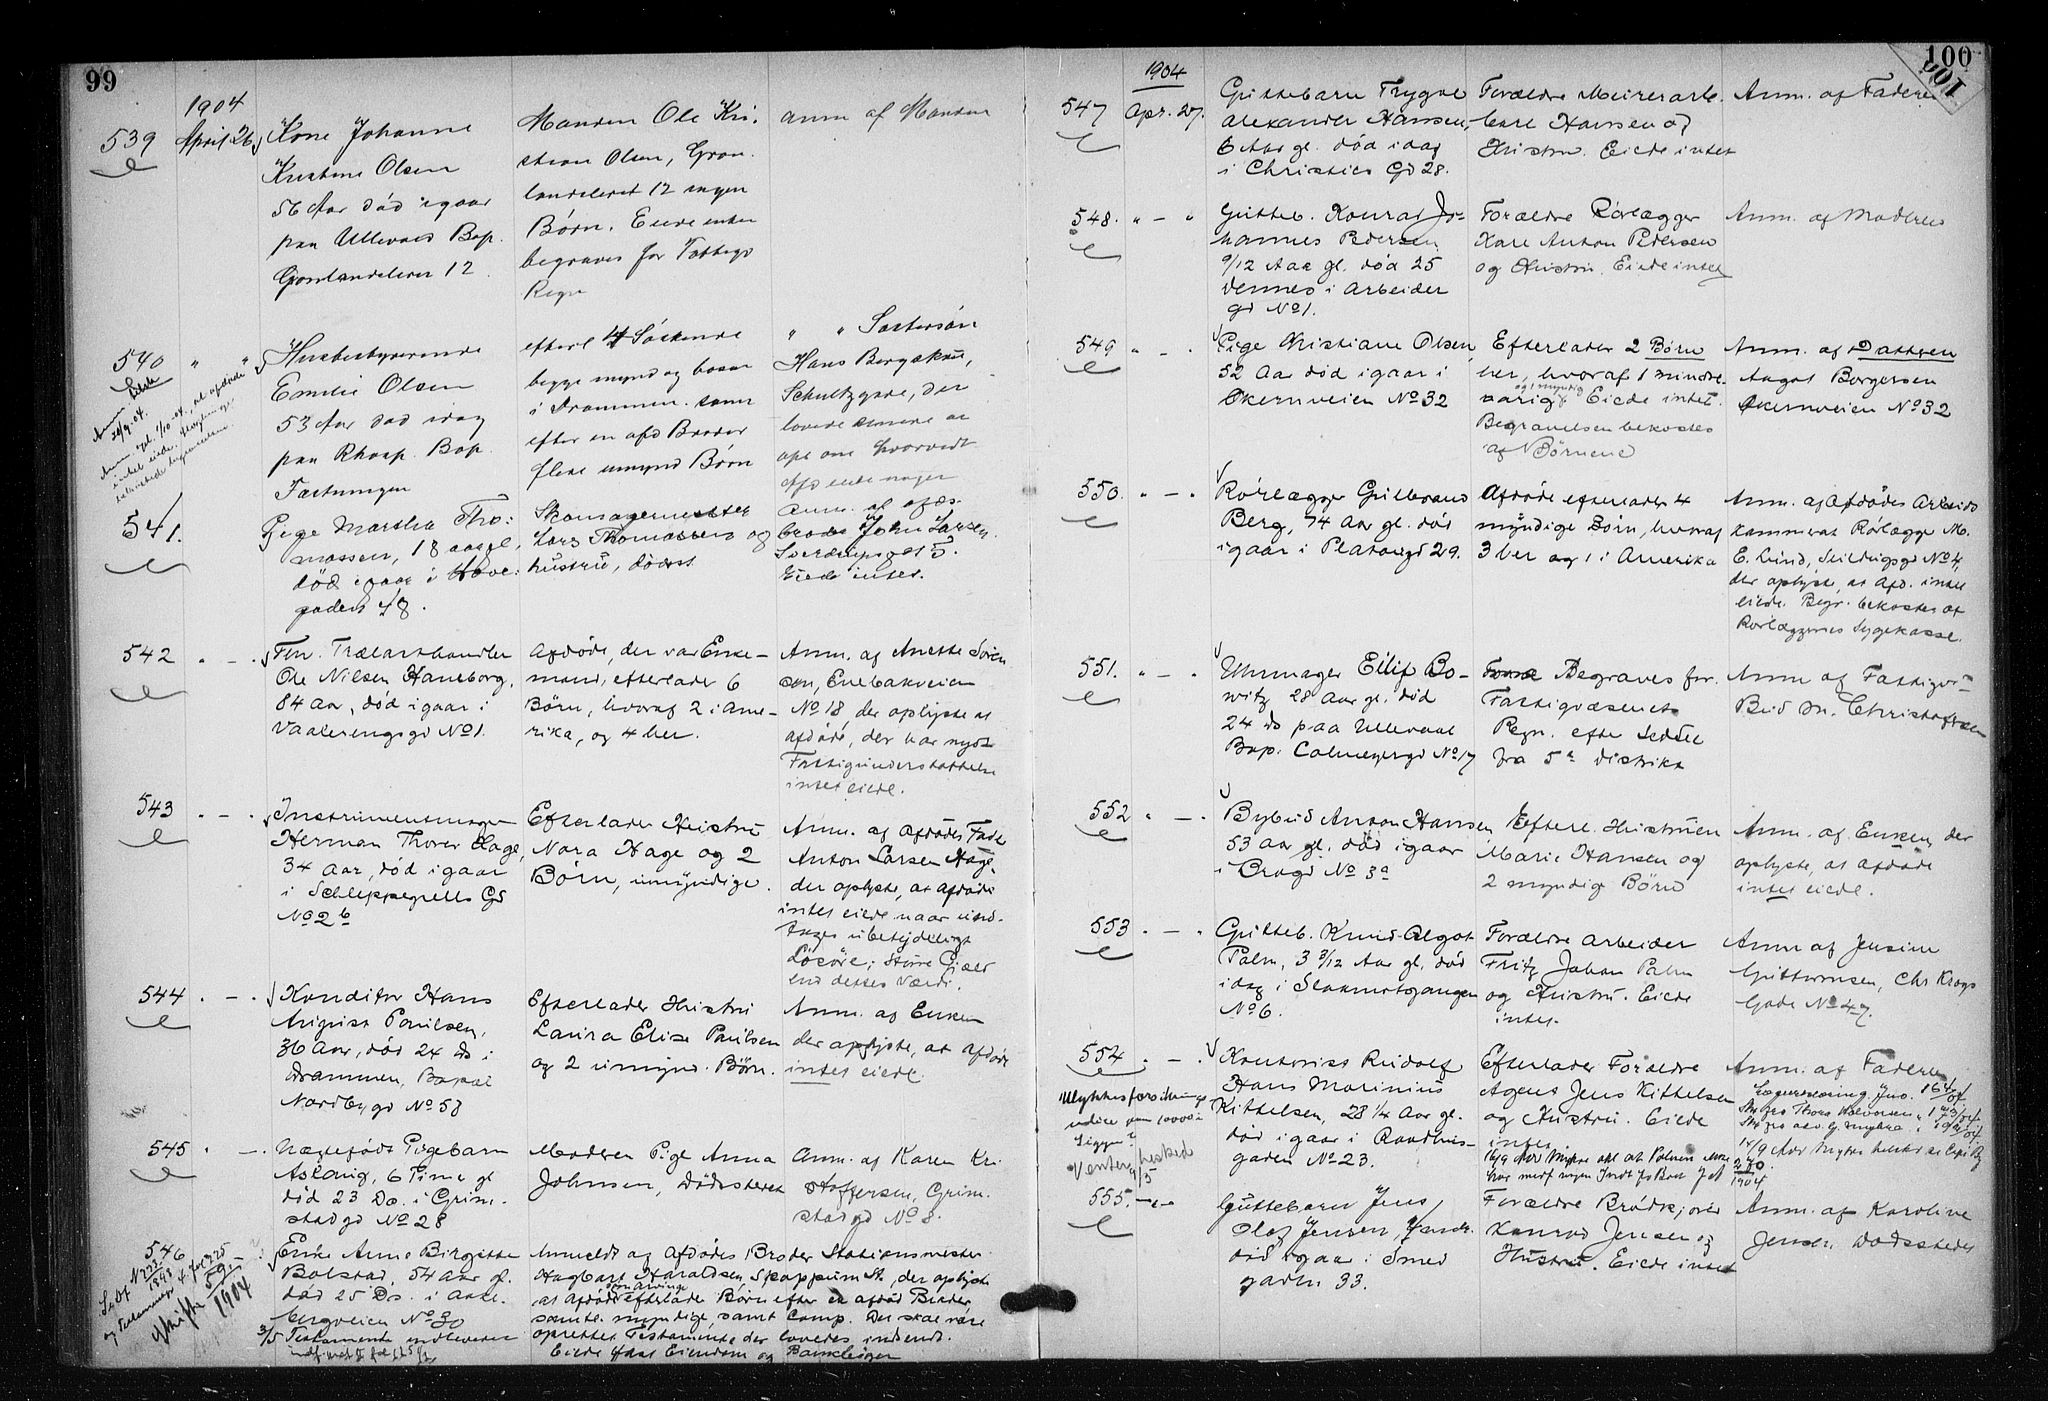 99
1904
539
April 26
Kone Johanne
Kristine Olsen
56 Aar død igaar
paa Ullevaal Bsp.
Grønlandsleret 12
Manden Ole Kri-
stian Olsen, Grøn-
landsleret 12 ingen
Børn. Eiede intet
begraves for Fattigv
Regn
Anm af Manden
540 " "
Husbestyrerinde
Emilie Olsen
53 Aar død idag
paa Rhosp. Bop.
Fæstningen
efterl 4 Søskende
begge mynd og bosat
i Drammen samt
efter en afd Broder
flere umynd Børn
" " Søstersøn
Hans Bergskau,
Schultzgade, der
lovede senere at
opl om hvorvidt
Afd eiede noget
541.
Pige Martha Tho-
massen, 18 aar gl.
død igaar i Tove-
gaden 48.
Skomagermester
Lars Thomassen og
hustru, dødsst
Anm. af afdes
broder John Larsen
Sverdrups gt 5.
Eiede intet.
542 " - "
Fhv. Trælasthandler
Ole Nilsen Haneborg,
84 Aar, død igaar i
Vaalerengsgd No 1.
Afdøde, der var Enke-
mand, efterlader 6
Børn, hvoraf 2 i Ame-
rika, og 4 her.
Anm. af Anette Søren
sen, Enebakveien
No 18, der oplyste at
afdøde, der har nydt
Fattigunderstøttelse
intet eiede.
543 " - "
Instrumentmager
Herman Thorer Hage,
34 Aar, død igaar
i Schleppegrells Gd
No 2 b
Efterlader Hustru
Nora Hage og 2
Børn, umyndige.
Anm. af Afdødes Fader
Anton Larsen Hage,
der oplyste, at Afdøde
intet eiede naar und-
tages ubetydeligt
Løsøre; større Gjæld
end dettes Værdi.
544 " - "
Konditor Hans
August Paulsen,
36 Aar, død 24 ds i
Drammen, Bopæl
Nordbygd No 58
Efterlader Hustru
Laura Elise Paulsen
og 2 umynd. Børn.
Anm. af Enken
der oplyste, at Afdøde
intet eiede.
545 " - "
Uægtefødt Pigebarn
Aslaug, 6 Time gl
død 23 Ds. i Grim-
stadgd No 28
Moderen Pige Anna
Johnsen, Dødsstedet
Anm. af Karen Kri
stoffersen, Grim-
stadgd No 8.
546
Skifte 59/1904
Enke Anne Birgitte
Bolstad, 54 Aar gl.
død 25 Ds. i Aake-
bergveien No 30
3/5 Testamente indleveret
Anmeldt af Afdødes Broder Stationsmester
Hagbart Haraldsen, Skoppum St., der oplyste
at Afdøde som Arvinge efterlader Børn efter en afdød Broder,
samtl. myndige, samt Comp. Der skal være
oprettet Testamente der lovedes indsendt.
Eiede fast Eiendom og Bankbøger
100
1904
547
Apr. 27.
Guttebarn Trygve
Alexander Hansen,
6 Aar gl. død idag
i Christies Gd 28.
Forældre Meierarb.
Carl Hansen og
Hustru. Eiede intet
Anm. af Faderen
548. " - "
Gutteb. Konrad Jo-
hannes Pedersen
9/12 Aar gl. død 25
dennes i Arbeider
gd No 1.
Forældre Rørlægger
Karl Anton Pedersen
og Hustru. Eiede intet
Anm. af Moderen
549 " - "
Pige Kristiane Olsen,
52 Aar død igaar i
Økernveien No 32
Efterlader 2 Børn
her, hvoraf 1 mindre-
aarig og 1 myndig Eiede intet.
Begravelsen bekostes
af Børnene
Anm. af Datteren
Aagot Borgersen
Økernveien No 32
550. " - "
Rørlægger Gulbrand
Berg, 74 Aar gl. død
igaar i Platousgd 29.
Afdøde efterlader 4
myndige Børn, hvoraf
3 her og 1 i Amerika
Anm. af Afdødes Arbeids
kammerat Rørlægger M.
E. Lund, Seilduksgd No 4,
der oplyste, at Afd. intet
eiede. Begr. bekostes af
Rørlæggernes Sygekasse.
551. " - "
Uhrmager Eilif Bo-
witz 28 Aar gl. død
24 ds paa Ullevaal
Bop. Calmeyersgd No 17
Begraves for
Fattigvæsenets
Regn. efter Seddel
fra 5te distrikt
Anm af Fattigv-
Bud M. Christoffersen
552 " - "
Bybud Anton Hansen
53 Aar gl. død igaar
i Brogd No 3a
Efterl. Hustruen
Marie Hansen og
2 myndige Børn
Anm. af Enken, der
oplyste, at afdøde
intet eiede.
553 " - "
Gutteb. Knud Algot
Palm, 3 3/12 Aar gl. død
idag i Stokmoensgangen
No 6.
Forældre Arbeider
Fritz Johan Palm
og Hustru. Eiede
intet.
Anm af Jensine
Guttormsen, Chr Krogs
Gade No 47.
554 " - "
Ulykkesforsikrings
Venter besked
9/5
Kontorist Rudolf
Hans Marinius
Kittelsen, 28 1/4 Aar gl.
død igaar i Raadhus-
gaden No 23.
Efterlader Forældre
Agent Jens Kittelsen
og Hustru. Eiede
intet
Anm. af Faderen
555. " - "
Guttebarn Jens
Olaf Jensen,
død igaar i Smed
gaden 33.
Forældre Brødkjører
Konrad Jensen og
Hustru. Eiede intet
Anm. af Karoline
Jensen, Dødsstedet